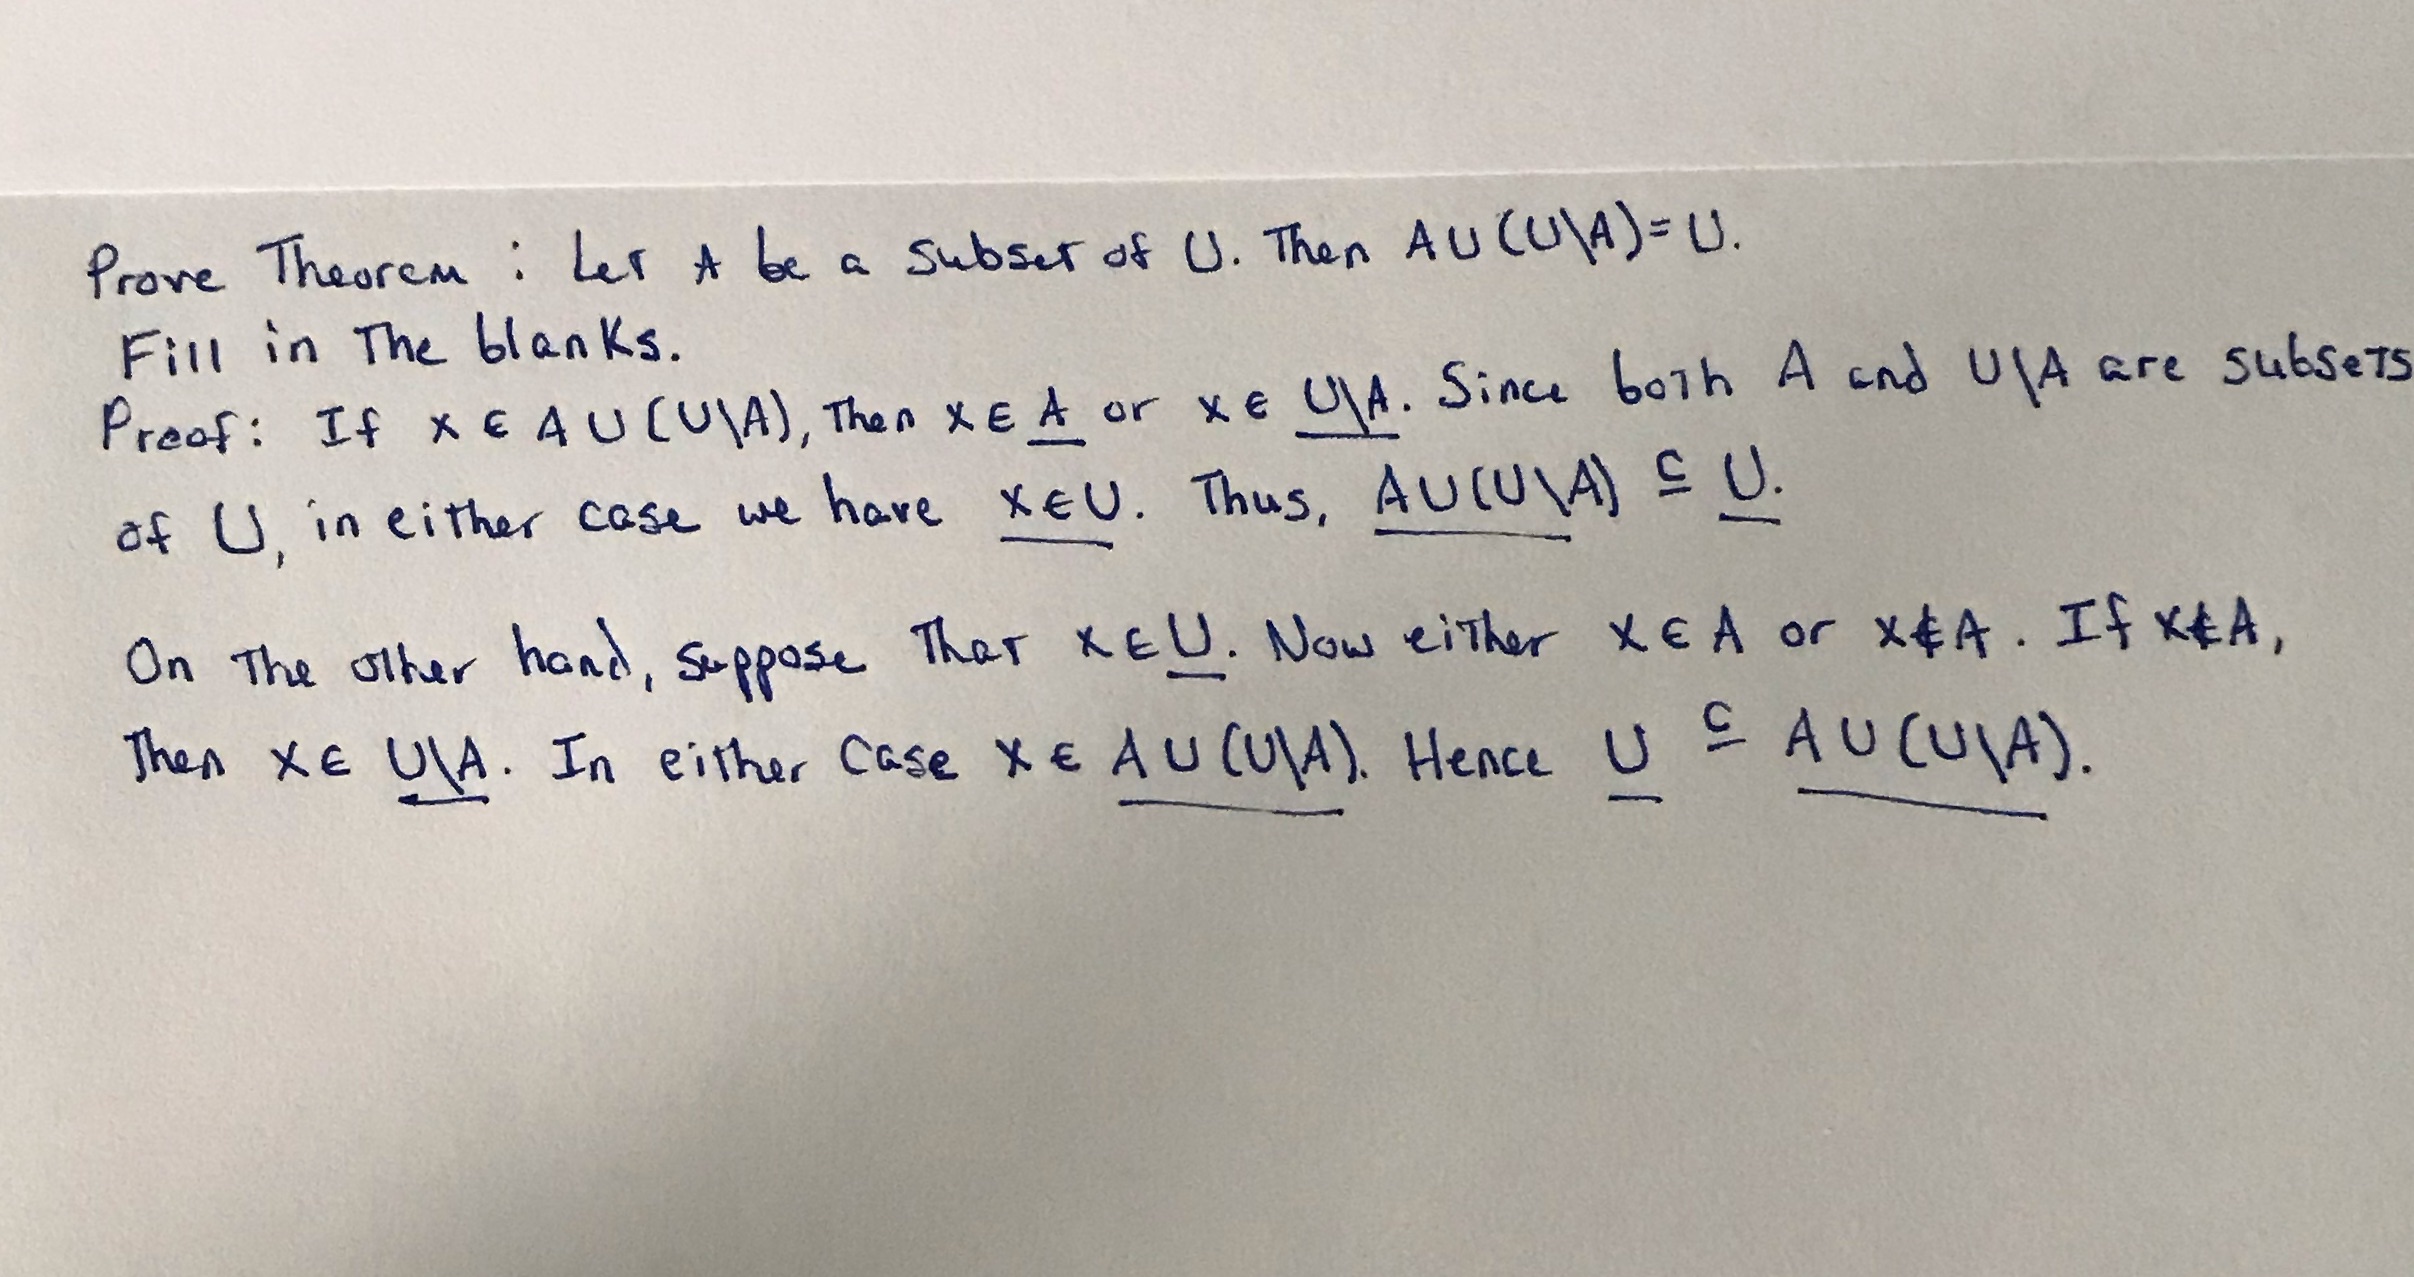 Prove Theorem : Let A be a subset of U. Then A∪(U\A)=U.
Fill in The blanks.
Proof: If x ∈ A∪(U\A), Then x∈ A or x∈ U\A. Since both A and U\A are subsets
of U, in either case we have x∈U. Thus, A∪(U\A) ⊆ U.
On The other hand, suppose That x∈U. Now either x∈A or x∉A. If x∉A,
Then x∈ U\A. In either Case x∈ A∪(U\A). Hence U ⊆ A∪(U\A).